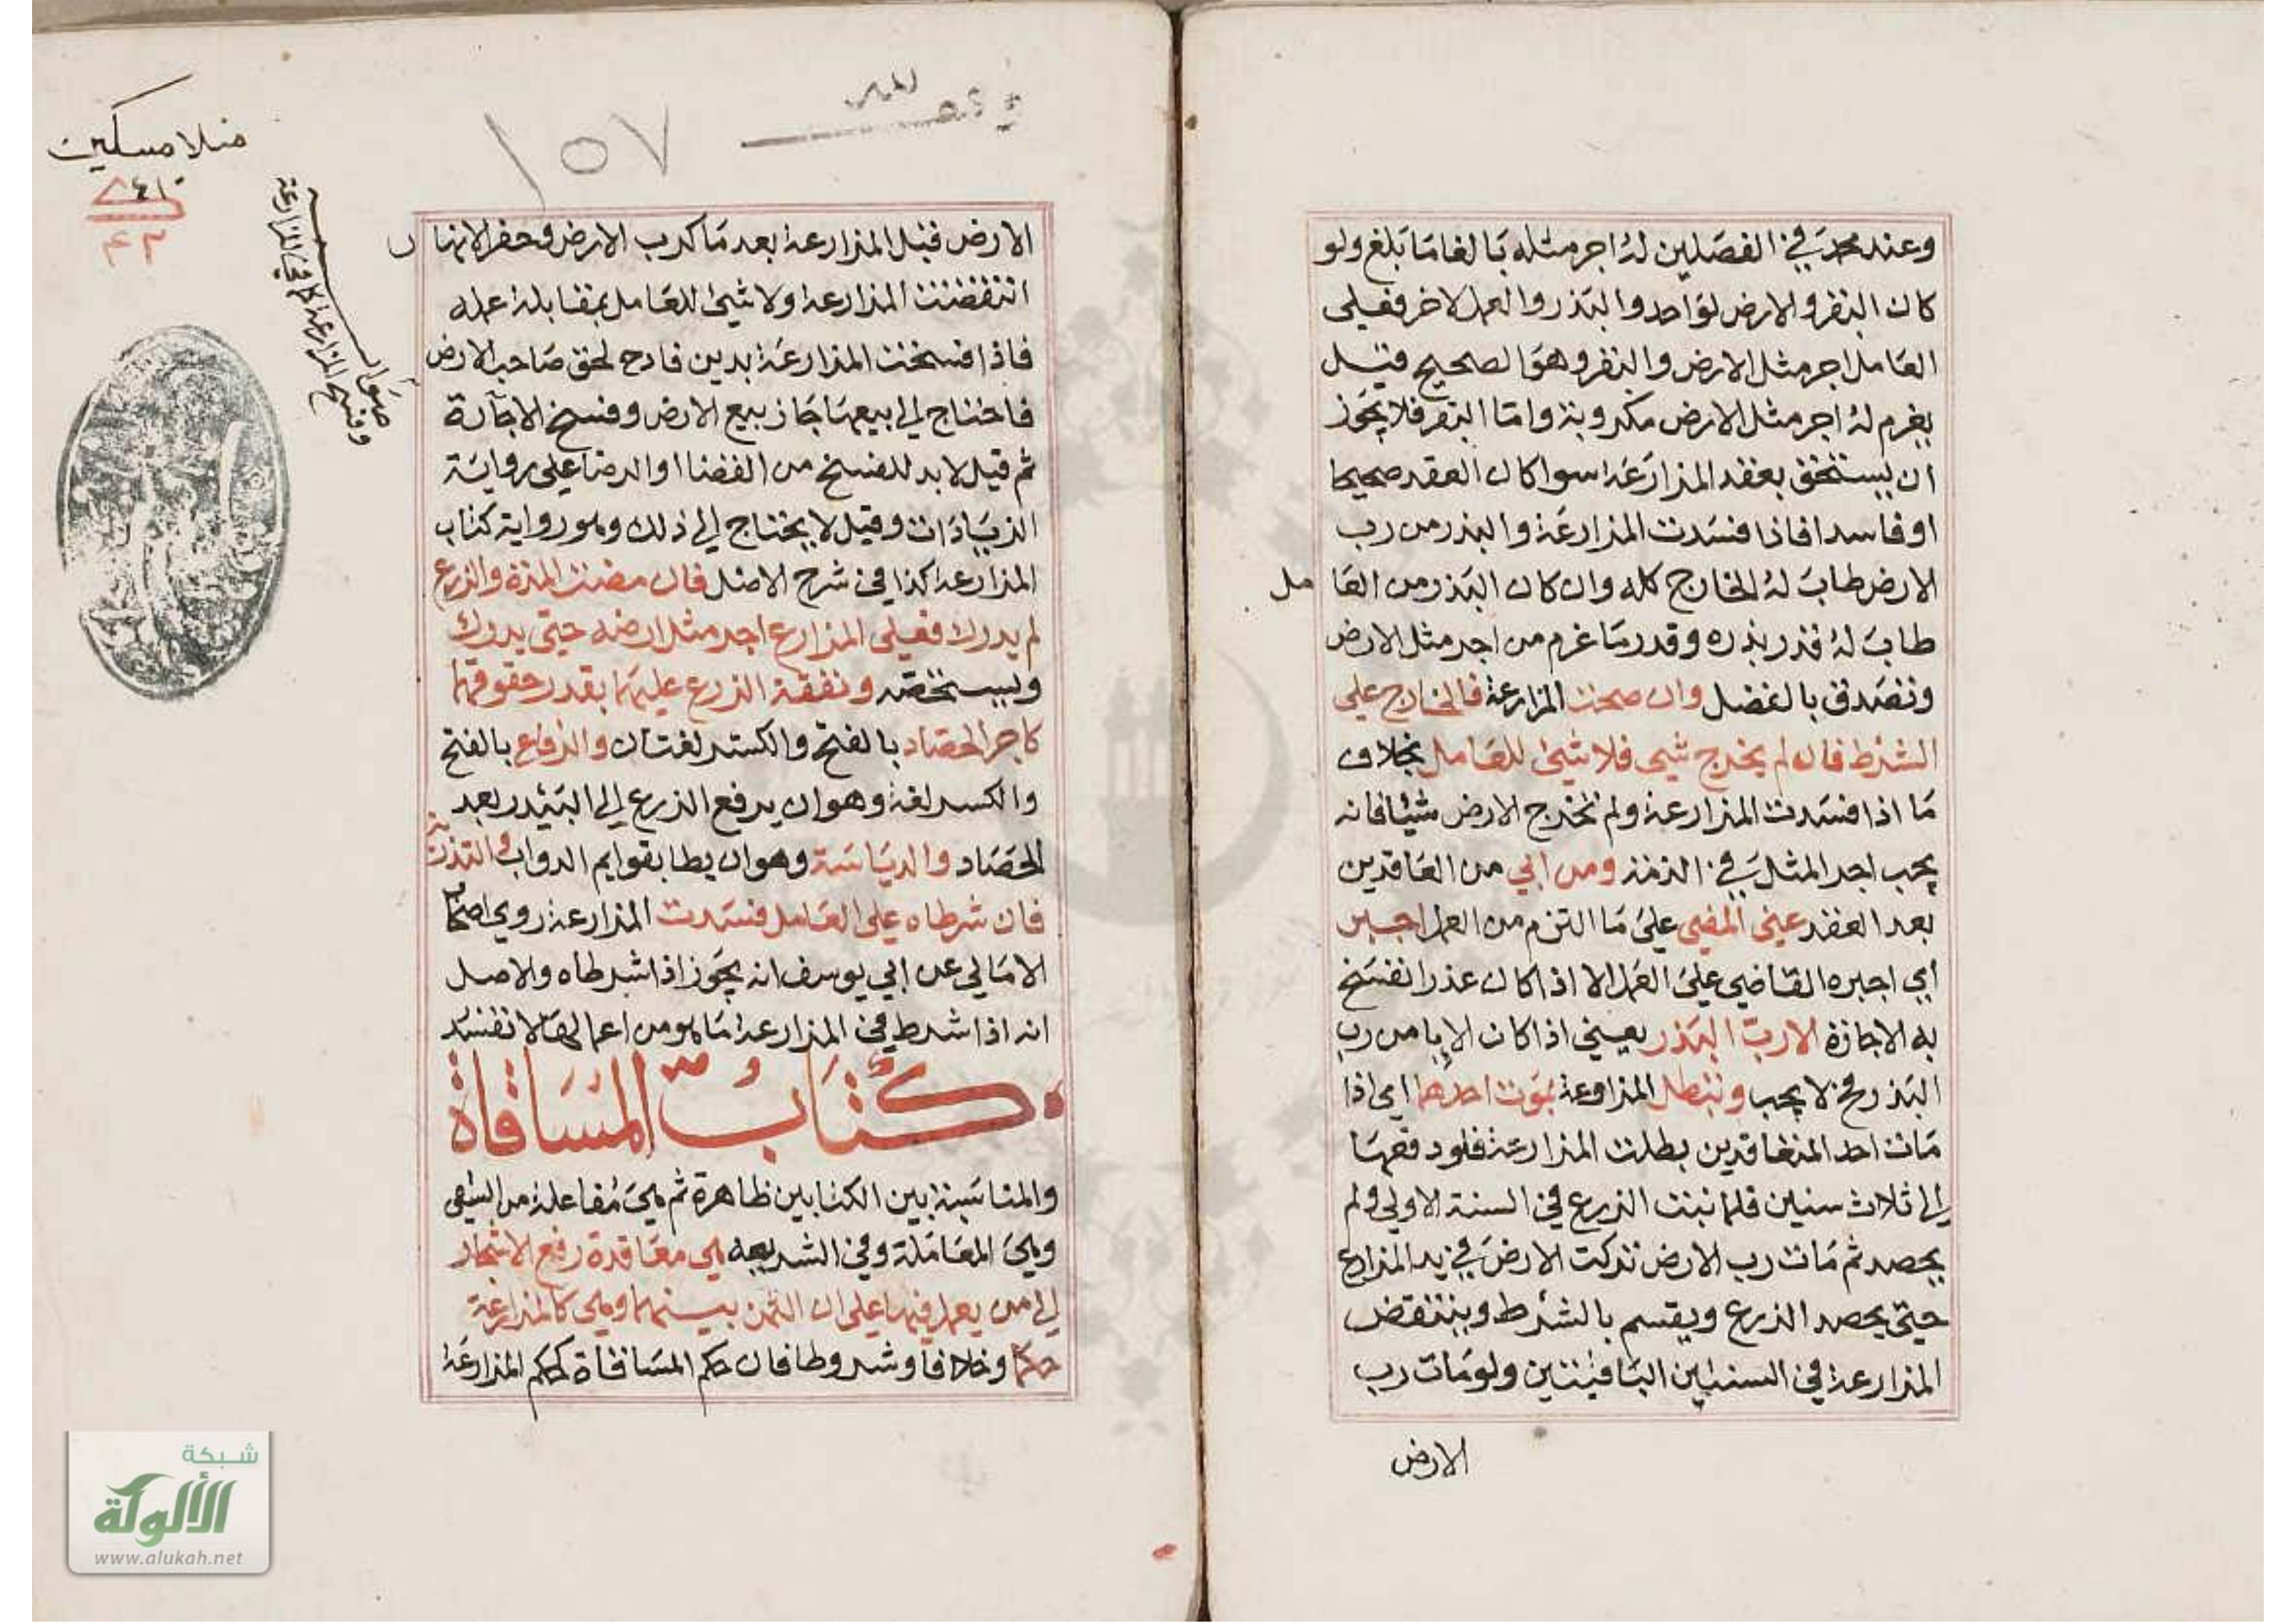 وعند محمد في الفصلين له اجر مثله بالغا ما بلغ ولو
كان البقر والارض لواحد والبذر والعمل لاخر فعلى
العامل اجر مثل الارض والبقر وهو الصحيح قيل
يغرم له اجر مثل الارض مكروبة واما البقر فلا يجوز
ان يستحق بعقد المزارعة سوا كان العقد صحيحا
او فاسدا فاذا فسدت المزارعة والبذر من رب
الارض طاب له الخارج كله وان كان البذر من العا مل
طاب له قدر بذره وقدر ما غرم من اجر مثل الارض
وتصدق بالفضل وان صحت المزارعة فالخارج على
الشرط فان لم يخرج شي فلا شئ للعامل بخلاف
ما اذا فسدت المزارعة ولم تخرج الارض شيئا فانه
يجب اجر المثل في الذمة ومن ابي من العاقدين
بعد العقد عن المضي على ما التزم من العمل اجبر
أي اجبره القاضي على العمل الا اذا كان عذرا تفسخ
به الاجازة الا رب البذر يعني اذا كان الإبا من رب
البذر فح لا يجب وتبطل المزاوعة بموت احدهما اي اذا
مات احد المتعاقدين بطلت المزارعة فلو دفعها
الى ثلاث سنين فلما نبت الزرع في السنة الاولى ولم
يحصد ثم مات رب الارض تركت الارض في يد المزارع
حتى يحصد الزرع ويقسم بالشرط وينتقض
المزارعة في السنتين الباقيتين ولو مات رب
الارض
منلا مسكين
١٥٧
الارض قبل المزارعة بعد ما كرب الارض وحفر الانها ر
انتقضت المزارعة ولا شئ للعامل بمقابلة عمله
فاذا فسخت المزارعة بدين فادح لحق صاحب الارض
فاحتاج الى بيعها جاز بيع الارض وفسخ الاجارة
ثم قيل لا بد للفسخ من القضا او الرضا على رواية
الزيادات وقيل لا يحتاج الى ذلك وهو رواية كتاب
المزارعة كذا في شرح الاصل فان مضت المدة والزرع
لم يدرك فعلى المزارع اجر مثل ارضه حتى يدرك
ويستحصد ونفقة الزرع عليهما بقدر حقوقهما
كاجر الحصاد بالفتح والكسر لغتان والرفاع بالفتح
والكسر لغة وهو ان يرفع الزرع الى البيدر بعد
الحصاد والدياسة وهو ان يطا بقوايم الدواب والتذرية
فان شرطاه على العامل فسدت المزارعة روى اصحاب
الامالي عن ابي يوسف انه يجوز اذا شرطاه والاصل
انه اذا شرط في المزارعة ما هو من اعمالها لا تفسد
كتاب المساقاة
والمناسبة بين الكتابين ظاهرة ثم هي مفاعلة من السقي
وهي المعاملة وفي الشريعه هي معاقدة رفع الاشجار
الى من يعمل فيها على ان الثمر بينهما وهي كالمزارعة
حكما وخلافا وشروطا فان حكم المساقاة كحكم المزارعة
شبكة
الألوكة
www.alukah.net